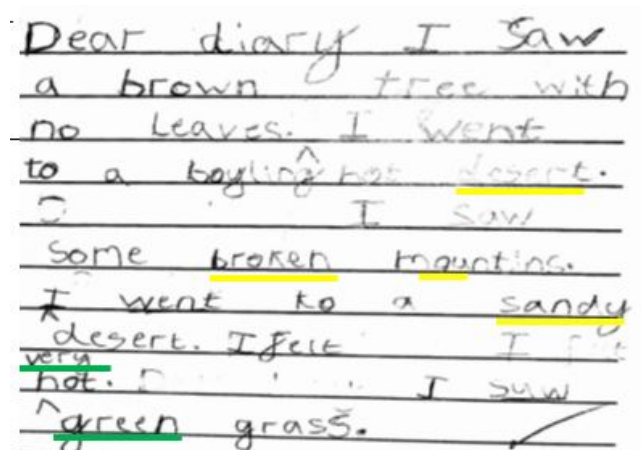 Dear diary I Saw
a brown tree with
no Leaves. I went
to a boyling hot desert.
I saw
some broken mountins.
I went to a sandy
desert. I felt I felt
very
hot. I saw
green grass.